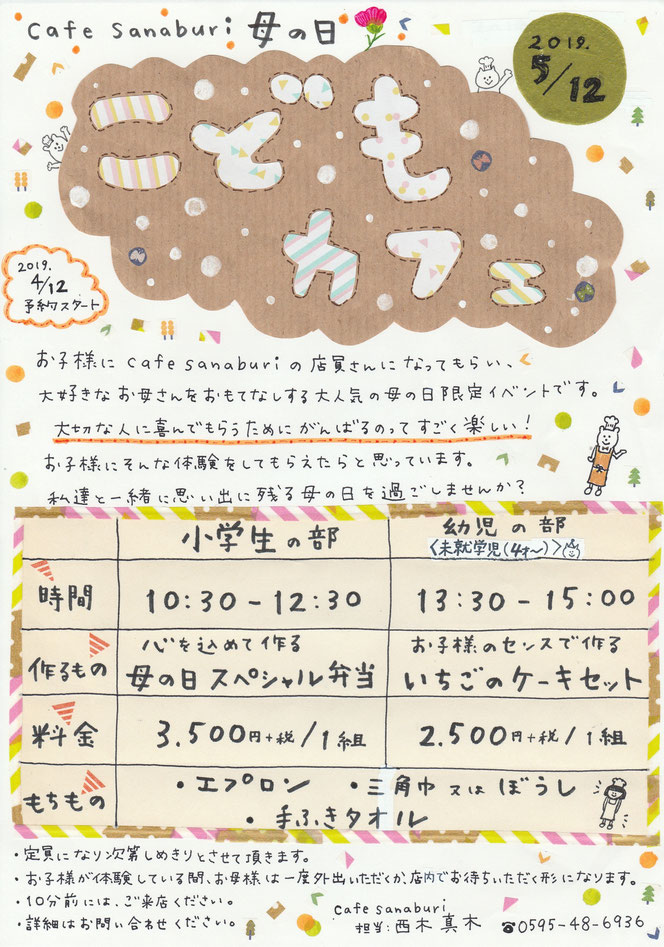 cafe sanaburi 母の日
2019.
5/12
こども
カフェ
2019.
4/12
予約スタート
お子様に cafe sanaburiの店員さんになってもらい、
大好きなお母さんをおもてなしする大人気の母の日限定イベントです。
大切な人に喜んでもらうためにがんばるのってすごく楽しい!
お子様にそんな体験をしてもらえたらと思っています。
私達と一緒に思い出に残る母の日を過ごしませんか?
小学生の部 幼児の部
<未就学児(4才〜)>
時間 10:30-12:30 13:30-15:00
作るもの 心を込めて作る お子様のセンスで作る
母の日スペシャル弁当 いちごのケーキセット
料金 3.500円+税/1組 2.500円+税/1組
もちもの ・エプロン ・三角巾又はぼうし
・手ふきタオル
・定員になり次第しめきりとさせて頂きます。
・お子様が体験している間、お母様は一度外出いただくか、店内でお待ちいただく形になります。
・10分前には、ご来店ください。
・詳細はお問い合わせください。
cafe sanaburi
担当:西木 真木 ☎0595-48-6936